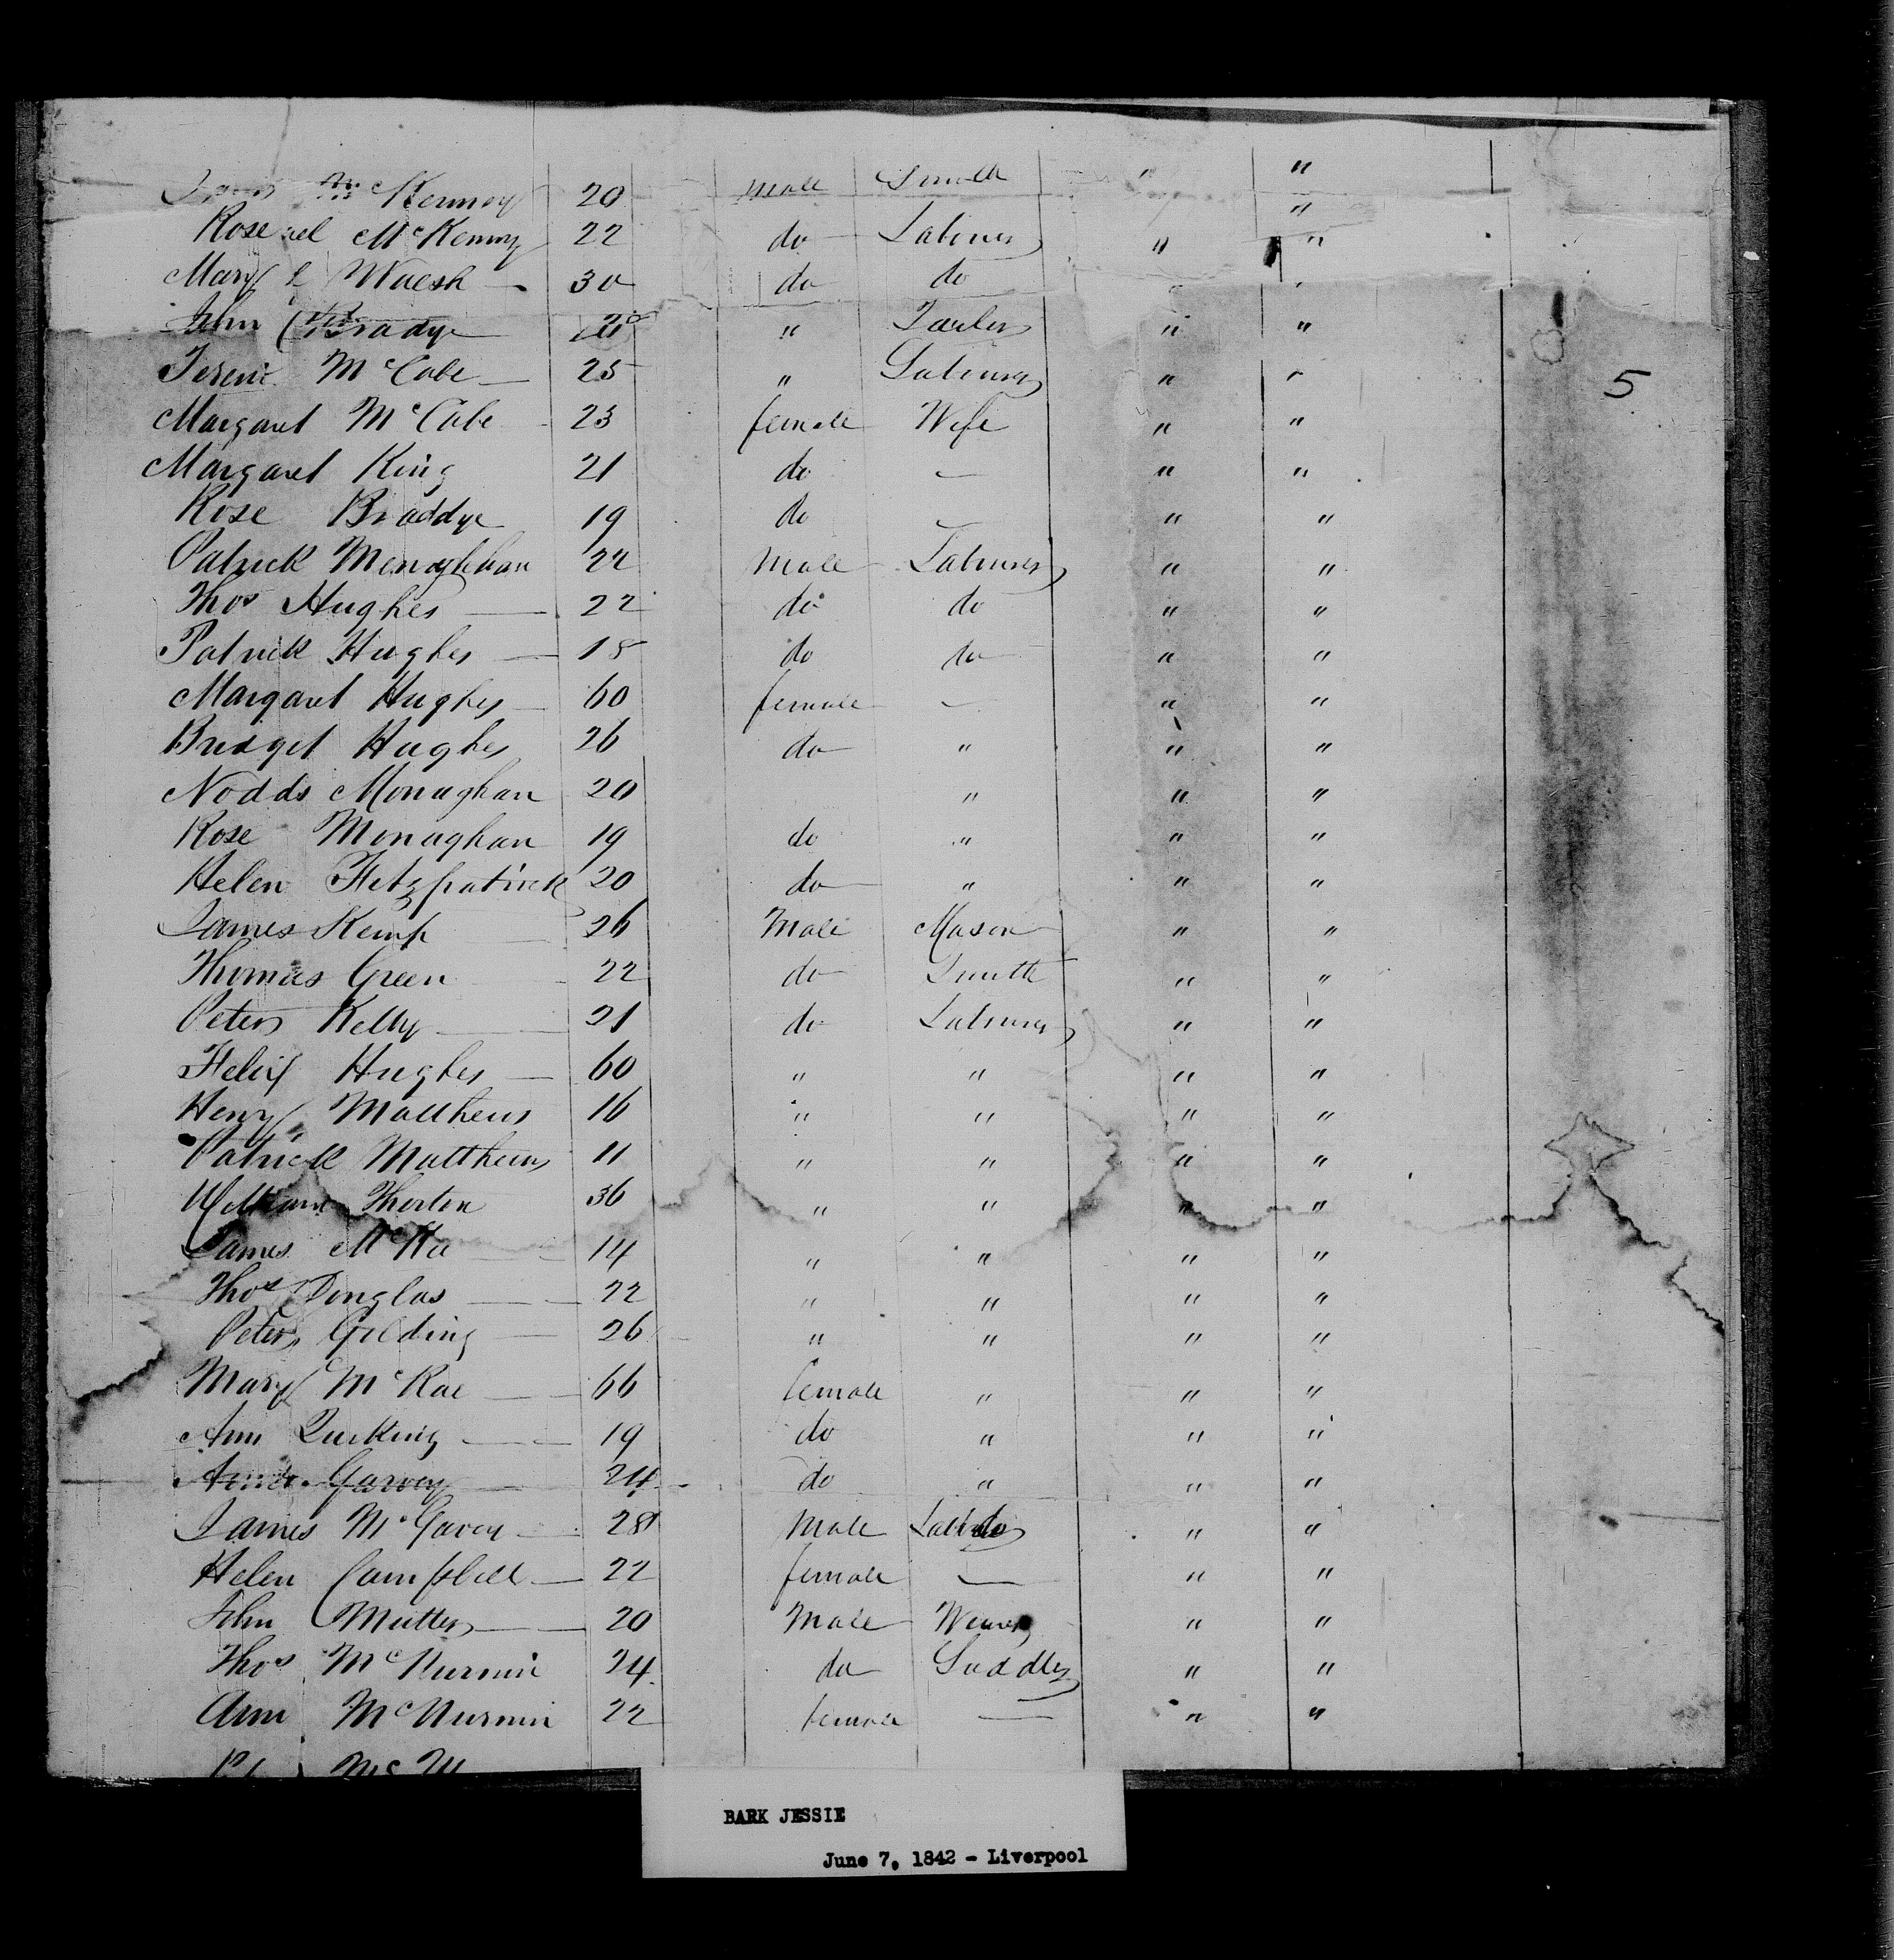 McKenney 20 male Smith " "
"
Rose McKenny 22 do Labourer " "
Mary Walsh — 30 do do " "
John Bradye " Tailor " "
McCabe — 25 " Labourer " "
Margaret McCabe 23 female Wife " "
Margaret King 21 do — " "
Rose Braddye 19 do — " "
Patrick Menaghhan 22 Male Labourer " "
Thos Hughes — 22 do do " "
Patrick Hughes — 18 do do " "
Margaret Hughes — 60 female — " "
Bridget Hughes 26 do " " "
Nodds Monaghan 20 " " "
Rose Monaghan 19 do " " "
Helen Fitzpatrick 20 do " " "
James Kemp 26 Male Mason " "
Thomas Green 22 do Smith " "
Peter Kelly — 21 do Labourer " "
Felix Hughes — 60 " " " "
Henry Matthews 16 " " " "
Patrick Matthews 11 " " " "
William Thorton 36 " " " "
James 14 " " " "
Thos Douglas — 22 " " " "
Peter Gilding — 26 " " " "
Mary McRae — 66 female " " "
Ann — 19 do " " "
Garvey — 24 do " " "
James McGavey 28 Male " "
Helen Campbell — 22 female — " "
John Mutter — 20 Male Weaver " "
Thos McNurnin 24 do Saddler " "
Ann McNurnin 22 female — " "
5
BARK JESSIE
June 7, 1842 - Liverpool